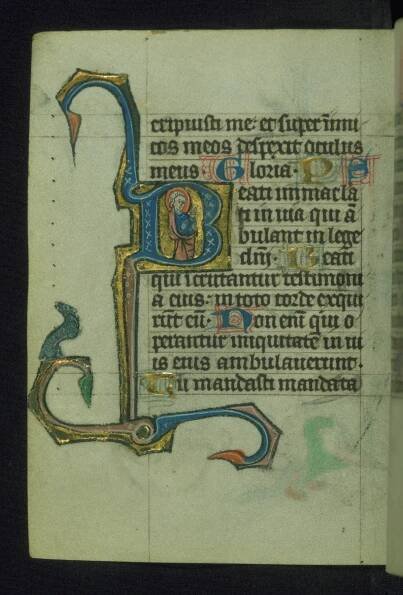 eripuisti me· et super inimi
cos meos despexit oculus
meus· Gloria· P S
Beati inmacla
ti in uia qui ā
bulant in lege
dn̄j· Beati
qui scrutantur testimoni
a eius: in toto corde exqui
rūt eū· Non enī qui o
perantur iniquitatē in ui
is eius ambulauerunt·
Tu mandasti mandata